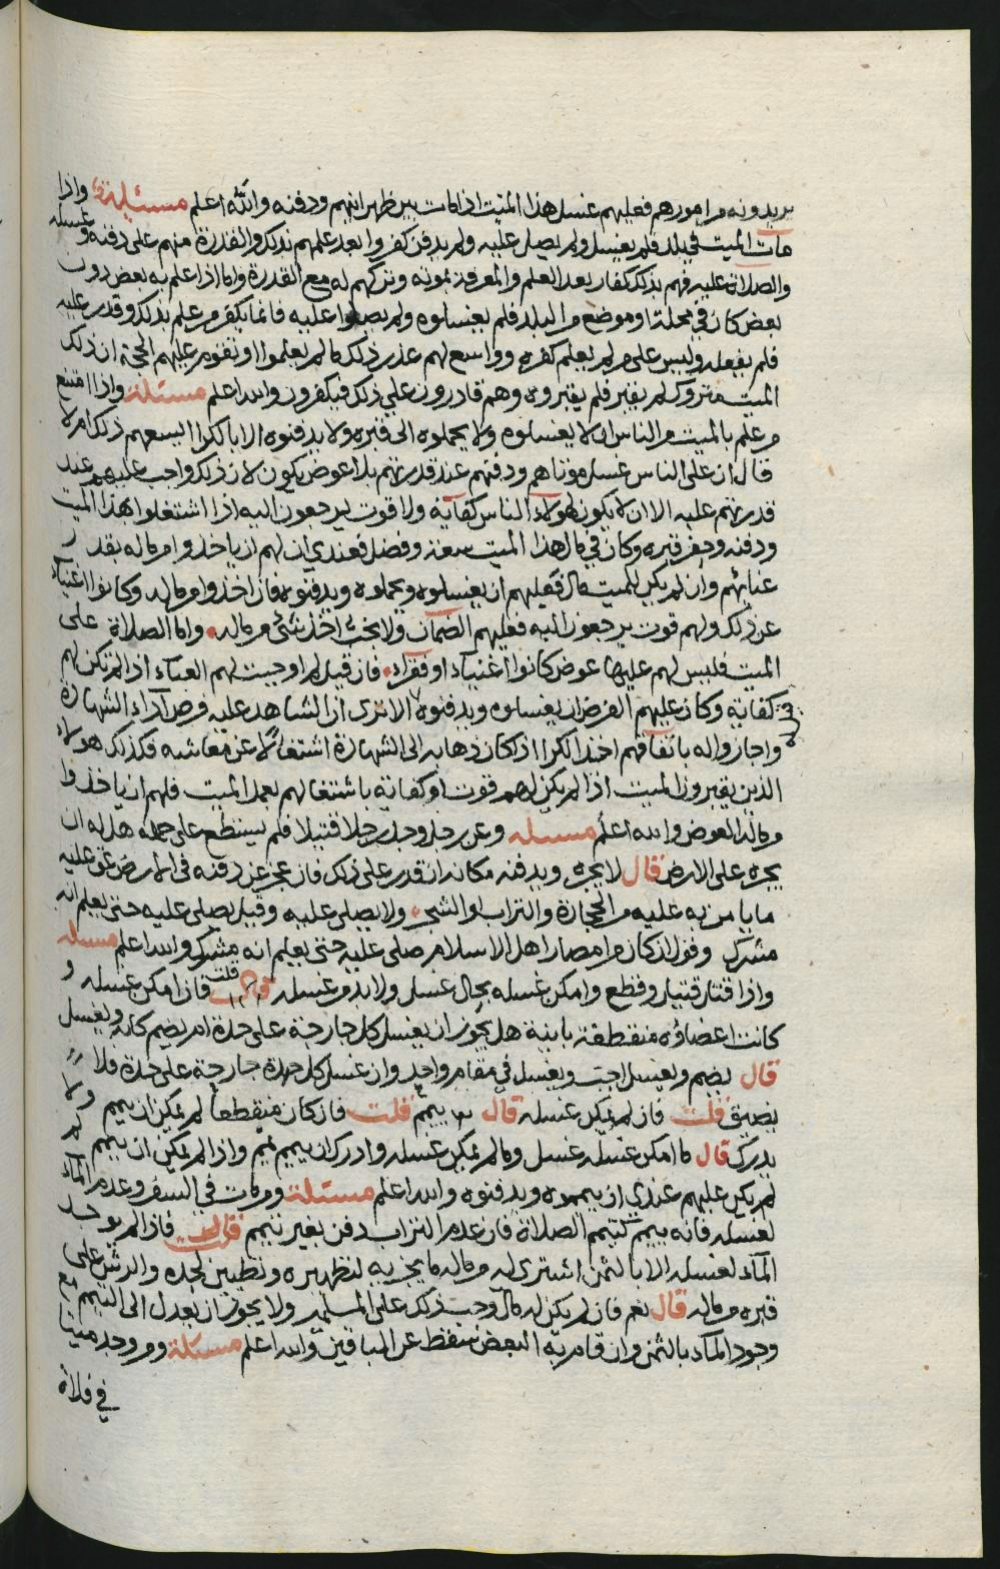 يريدونه من امورهم فعليهم غسل هذا الميت اذا مات بين ظهرانيهم ودفنه والله اعلم مسئلة واذا
مات الميت في بلد فلم يغسل ولم يصل عليه ولم يدفن كفروا بعد علمهم بذلك والقدرة منهم على دفنه وغسله
والصلاة عليه فهم بذلك كفار بعد العلم والمعرفة بموته وتركهم له مع القدرة واما اذا علم به بعض دون
بعض كان في محلة او موضع من البلد فلم يغسلوه ولم يصلوا عليه فانما يكفر من علم بذلك وقدر عليه
فلم يفعله وليس على من لم يعلم كفر وواسع لهم عذر ذلك ما لم يعلموا او تقوم عليهم الحجة ان ذلك
الميت متروك لم يقبر فلم يقبروه وهم قادرون على ذلك فيكفرون والله اعلم مسئلة واذا امتنع
من علم بالميت من الناس ان لا يغسلوه ولا يحملوه الى قبره ولا يدفنوه الا بالكرا ايسعهم ذلك ام لا
قال ان على الناس غسل موتاهم ودفنهم عند قدرتهم بلا عوض يكون لان ذلك واجب عليهم عند
قدرتهم عليه الا ان لا يكون لهولاء الناس كفاية ولا قوت يرجعون اليه اذا اشتغلوا بهذا الميت
ودفنه وحفر قبره وكان في مال هذا الميت سعة وفضل فعندي ان لهم ان ياخذوا من ماله بقدر
عنائهم وان لم يكن للميت مال فعليهم ان يغسلوه ويحملوه ويدفنوه فان اخذوا من ماله وكانوا اغنياء
عن ذلك ولهم قوت يرجعون اليه فعليهم الضمان ولا يجب اخذ شئ من ماله واما الصلاة على
الميت فليس لهم عليها عوض كانوا اغنياء او فقراء فان قيل لم اوجبت لهم العناء اذا لم تكن لهم
كفاية وكان عليهم الفرض ان يغسلوه ويدفنوه الا ترى ان الشاهد عليه فرض آداء الشهادة
واجازوا له باتفاقهم اخذ الكرا اذا كان ذهابه الى الشهادة اشتغالا عن معاشه فكذلك هولاء
الذين يقبرون الميت اذا لم يكن لهم قوت او كفاية باشتغالهم بهذا الميت فلهم ان ياخذوا
من ماله العوض والله اعلم مسئله وعن رجل وجد رجلا قتيلا فلم يستطع على حمله هل له ان
يجره على الارض قال لا يجره ويدفنه مكانه ان قدر على ذلك فان عجز عن دفنه في الارض غمى عليه
ما يامن به عليه من الحجارة والتراب او الشجر ولا يصلى عليه وقيل يصلى عليه حتى يعلم انه
مشرك وقول ان كان من امصار اهل الاسلام صلى عليه حتى يعلم انه مشرك والله اعلم مسئله
واذا قتل قتيل وقطع وامكن غسله بحال غسل ولا بد من غسله قلت فان امكن غسله و
كانت اعضاؤه متقطعة باينة هل يجوز ان يغسل كل جارحة على حدة ام يضم كله ويغسل
قال يضم ويغسل احب ويغسل في مقام واحد وان غسل كل جارحة على حدة فلا
يضيق قلت فان لم يمكن غسله قال ييمم قلت فان كان متقطعا لم يمكن ان ييمم ولا
يدرك قال ما امكن غسله غسل وما لم يمكن غسله وادرك ان ييمم يمم واذا لم يمكن ان ييمم
لم يكن عليهم عندي ان ييمموه ويدفنوه والله اعلم مسئلة ومن مات في السفر وعدم الماء
لغسله فانه ييمم كتيمم الصلاة فان عدم التراب دفن بغير تيمم قلت فان لم يوجد
الماء لغسله الا بالثمن اشترى له من ماله ما يجزيه لتطهيره وتطيين لحده والرش على
قبره من ماله قال نعم فان لم يكن له مال وجب ذلك على المسلمين ولا يجوز ان يعدل الى التيمم مع
وجود الماء بالثمن وان قام به البعض سقط عن الباقين والله اعلم مسئلة ومن وجد ميتا
في فلاة